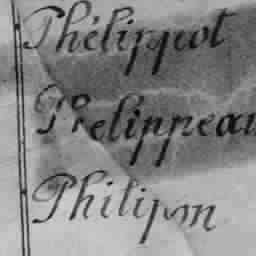 Phélippot
Phelippeau
Philipon